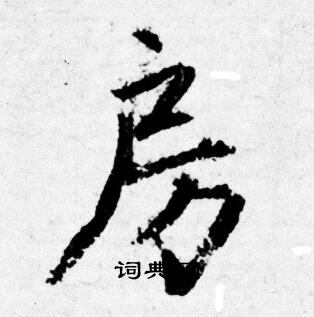 房
词典网